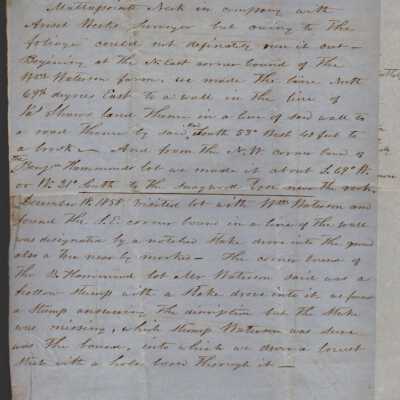 Mattapoisett Neck in company with
Ansel Weeks Surveyor but owing to the
foliage could not definately run it out —
Beginning at the N. East corner bound of the
Wm Waterson farm, we made the line North
69½ degrees East to a wall in the line of
Shaws land Thence in a line of said wall to
a road Thence by said road South 53° West 40 feet to
a brook — And from the N.W. corner bound of
the Hammonds lot we made it about S. 69° W.
or W. 21° South to the near the rock,
December 18, 1858. Visited lot with Wm Waterson and
found the S.E. corner bound in a line of the wall
was designated by a notched stake drove into the ground
also a tree near by marked — The corner bound of
the B. Hammond lot Mr Waterson said was a
hollow stump with a stake drove into it, we found
a stump answering the description but the stake
was missing, which stump Waterson was sure
was the bound, into which we drove a locust
stake with a hole bored through it —